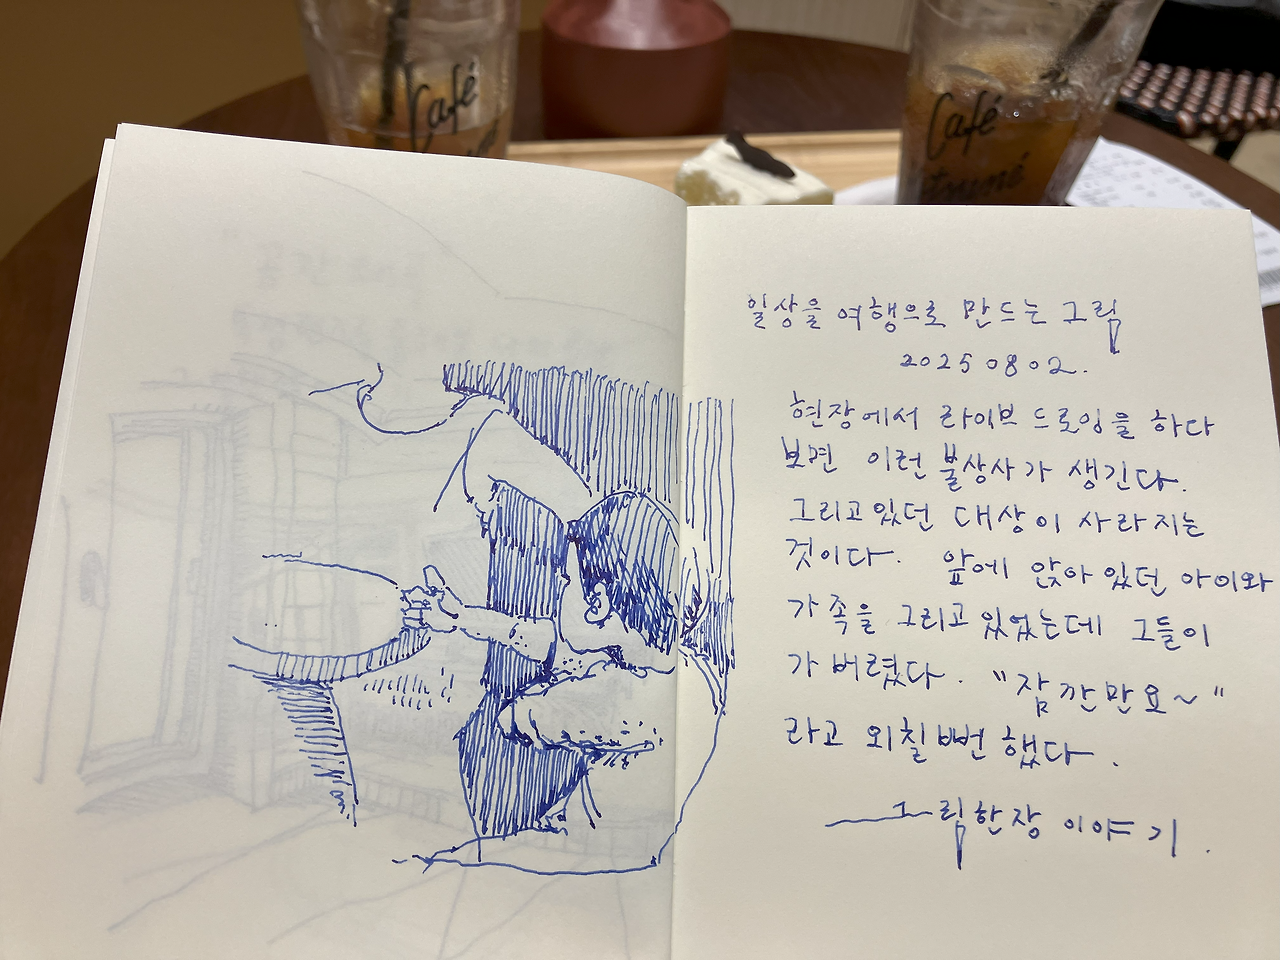 Café
Café
일상을 여행으로 만드는 그림
20250802.
현장에서 라이브 드로잉을 하다
보면 이런 불상사가 생긴다.
그리고 있던 대상이 사라지는
것이다. 앞에 앉아 있던 아이와
가족을 그리고 있었는데 그들이
가버렸다. "잠깐만요~"
라고 외칠뻔 했다.
그림한장 이야기.